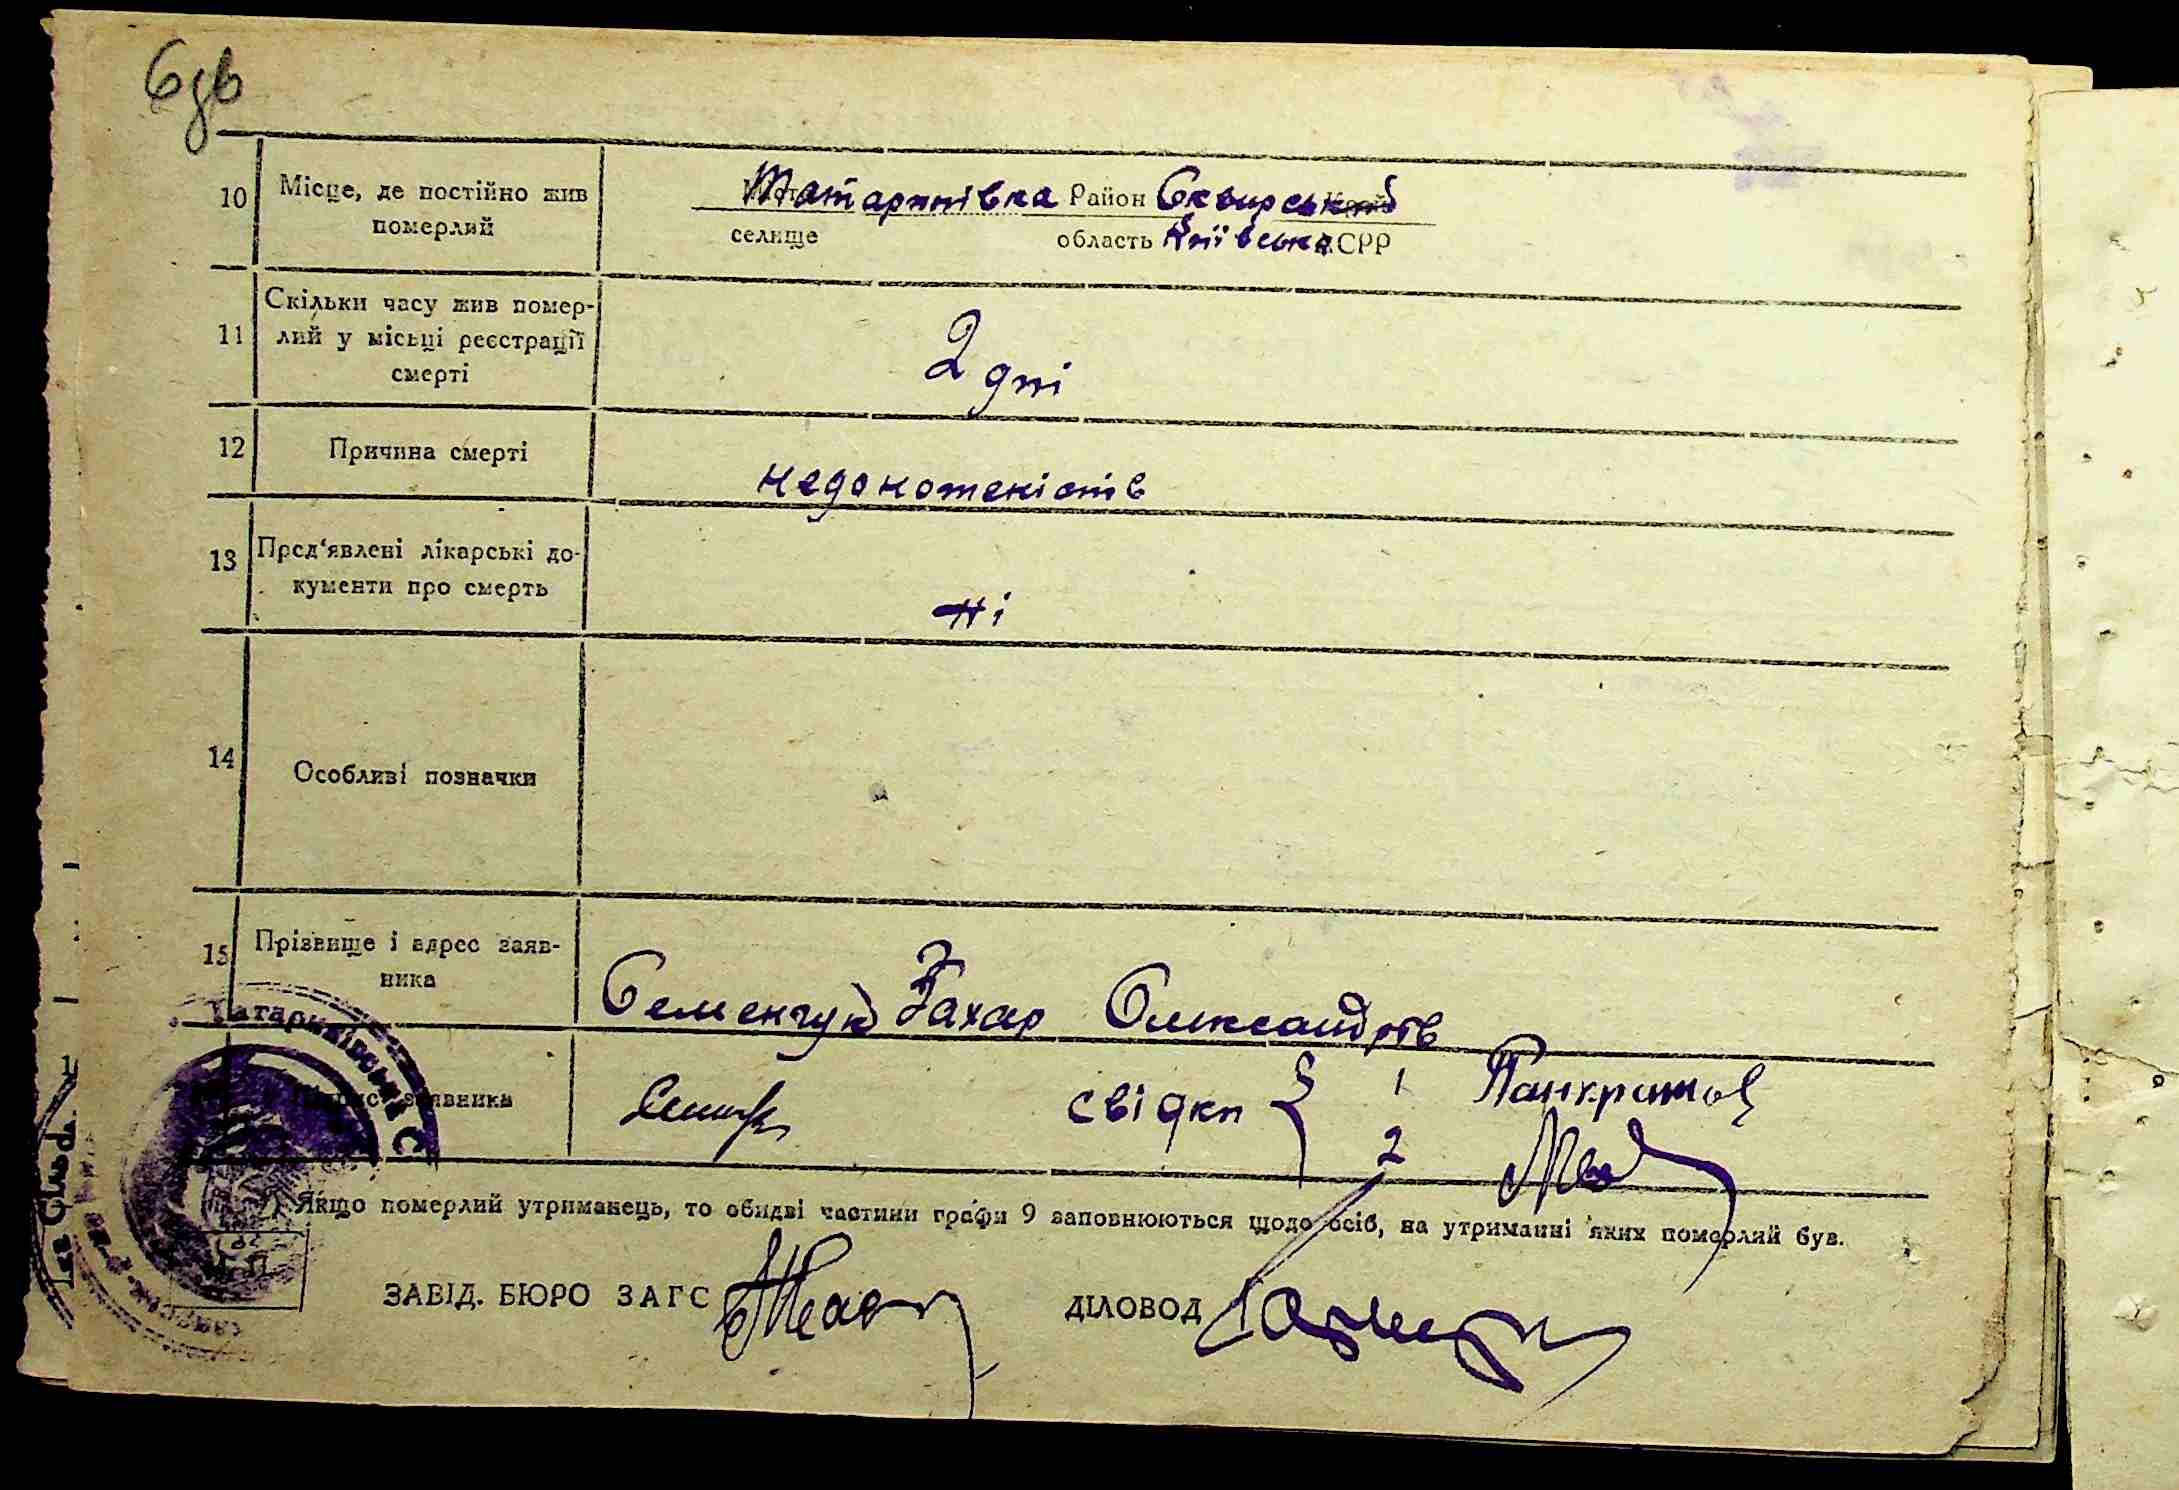 10 Місце, де постійно жив померлий
Татаринівка Район Сквирський
селище область Київська СРР
11 Скільки часу жив помер-
лий у місьці реєстрації
смерті
2 дні
12 Причина смерті
недоношеність
13 Пред'явлені лікарські до-
кументи про смерть
Ні
14 Особливі позначки
15 Прізвище і адрес заяв-
ника
Семенчук Захар Олександров
Татаринівська С
Підпис заявника
свідки { 1 Панкратов
2
Якщо померлий утриманець, то обидві частини графи 9 заповнюються щодо осіб, на утриманні яких померлий був.
ЗАВІД. БЮРО ЗАГС ДІЛОВОД